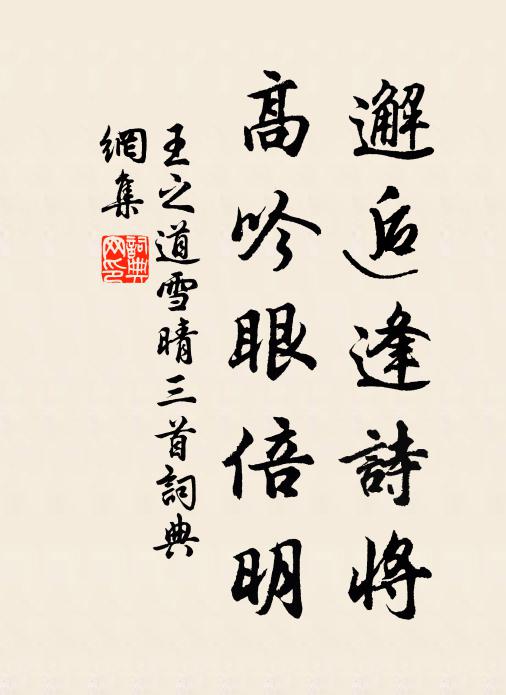 邂逅逢詩將
高吟眼倍明
王之道雪晴三首詞典
網集
詞典
网印